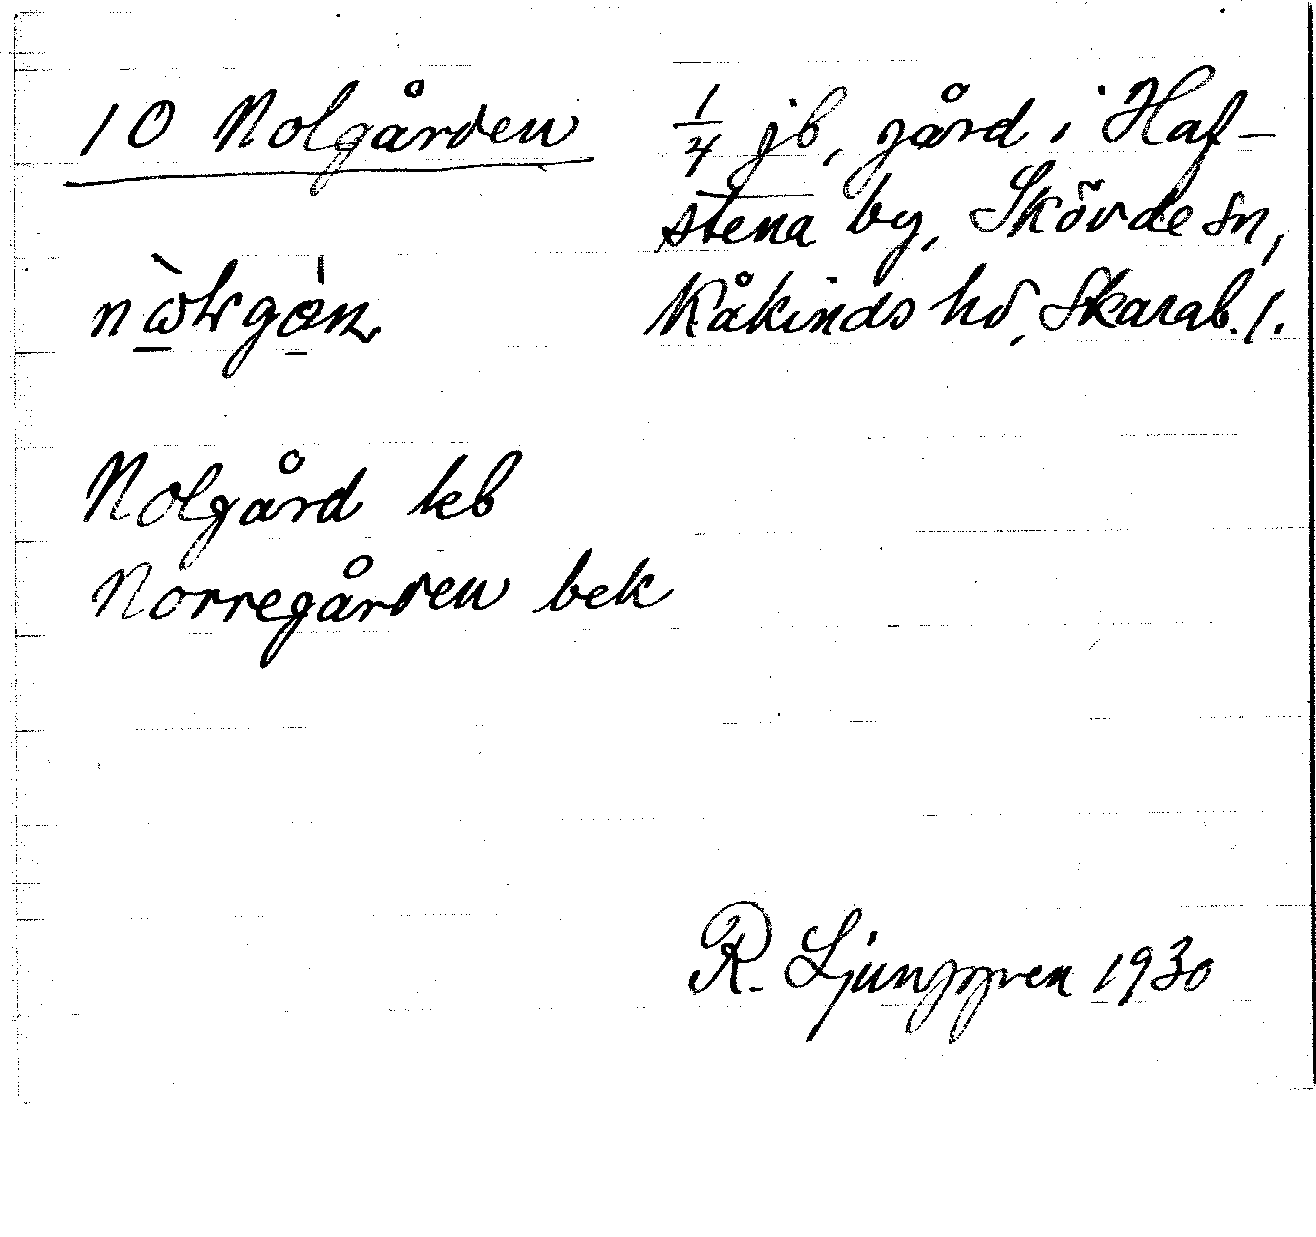 10 Nolgården
1/4 jb, gård i Haf-
stena by, Skövde sn,
Kåkinds hd, Skarab. l.
Nolgård kb
Norregården bek
R. Ljunggren 1930